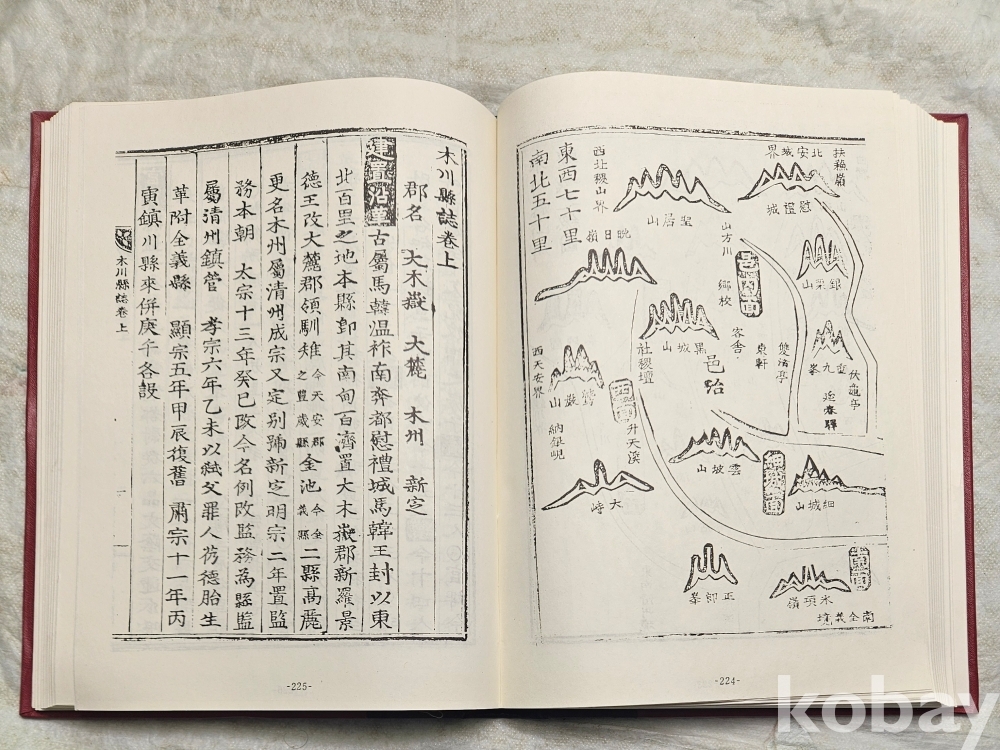 扶蘓嶺
北安城界
慰禮城
聖居山
西北稷山界
東西七十里
南北五十里
晩日嶺
山方川
銀栗山
鄕校
客舍
東軒
雙清亭
黑城山
社稷壇
邑治
重九峯
延春驛
伏龜亭
西天安界
鷲巖山
納銀峴
升天溪
雲坡山
細城山
大峙
正卿峯
木項嶺
南全義境
-224-
木川縣誌卷上
郡名 大木嶽 大麓 木州 新㝎
建置沿革 古屬馬韓温祚南奔都慰禮城馬韓王封以東
北百里之地本縣卽其南甸百濟置大木嶽郡新羅景
德王改大麓郡領馴雉 今天安郡之豊歲縣 金池 今全義縣 二縣高麗
更名木州屬清州成宗又定别號新㝎明宗二年置監
務本朝 太宗十三年癸巳改今名例改監務為縣監
屬清州鎮管 孝宗六年乙未以弑父罪人芿德胎生
革附全義縣 顯宗五年甲辰復舊 肅宗十一年丙
寅鎮川縣來併庚午各設
木川縣誌卷上
一
-225-
kobay